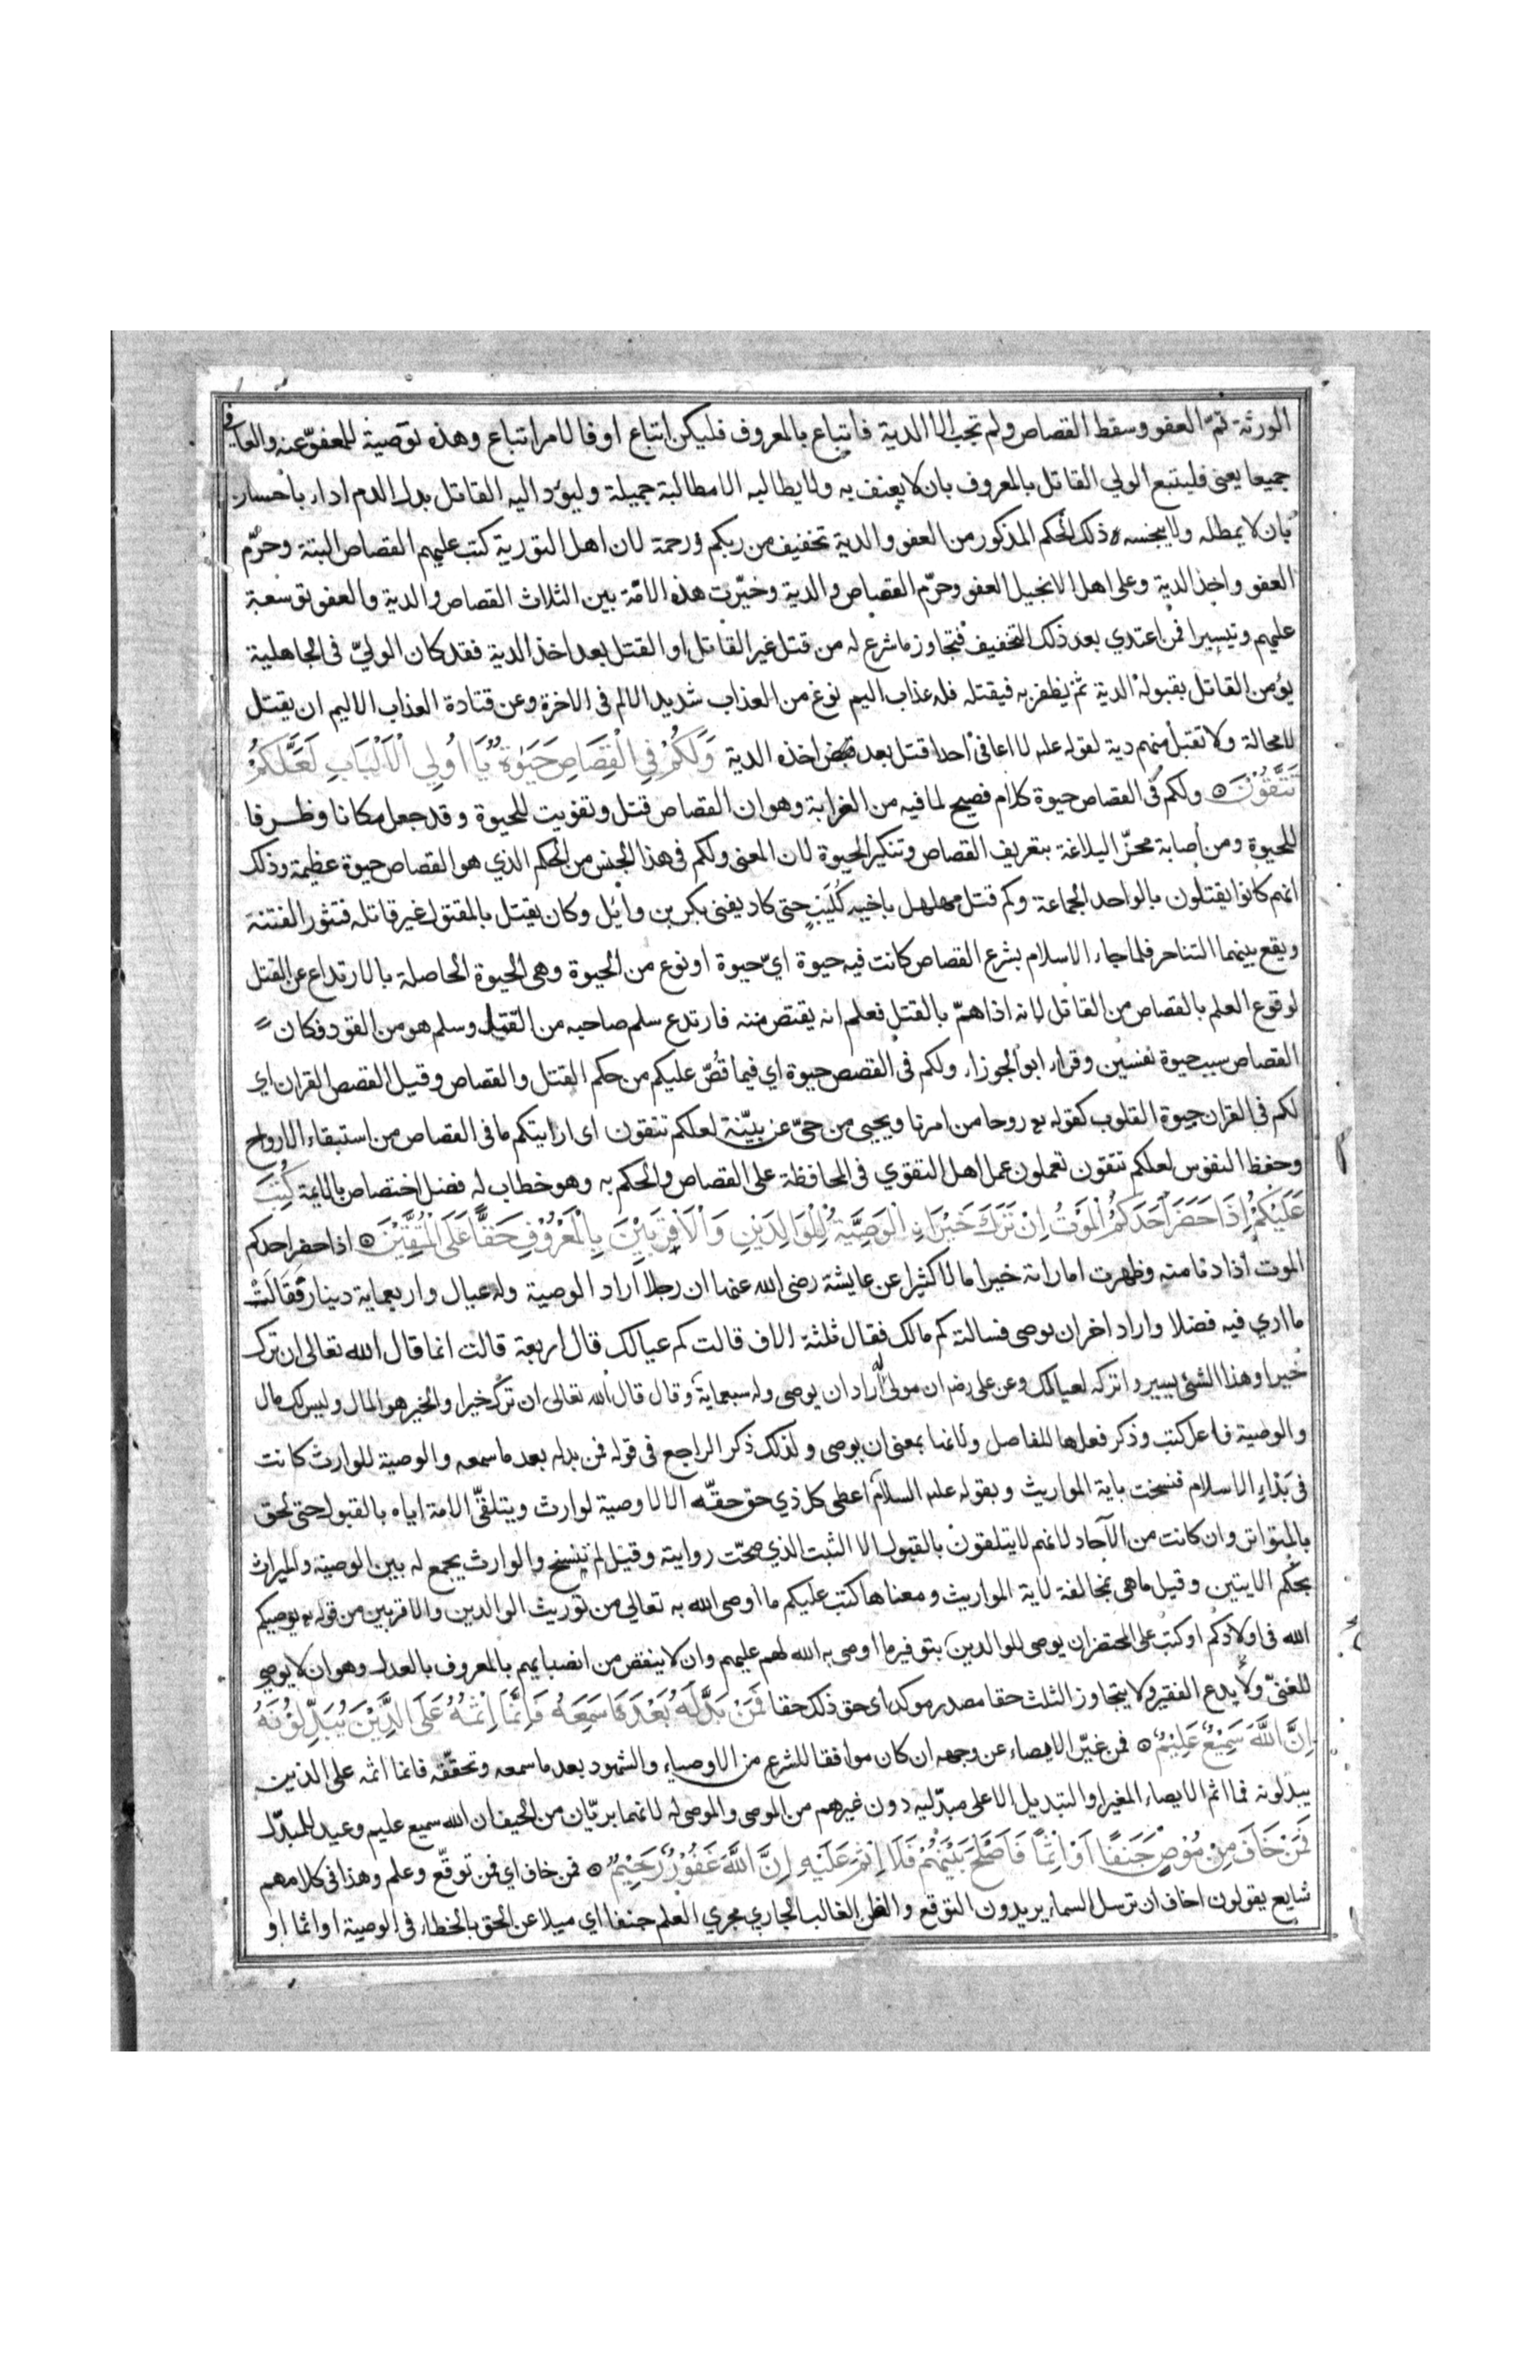 الورثة تمّ العفو وسقط القصاص ولم تجب الا الدية فاتباع بالمعروف فليكن اتباع او فالامر اتباع وهذه توصية للمعفوّ عنه والعافي
جميعا يعني فليتبع الولي القاتل بالمعروف بان لا يعنف به ولا يطالبه الا مطالبة جميلة وليؤد اليه القاتل بدل الدم اداء باحسان
بان لا يمطله ولا يبخسه ذلك الحكم المذكور من العفو والدية تخفيف من ربكم ورحمة لان اهل التورية كتب عليهم القصاص البتة وحرّم
العفو واخذ الدية وعلى اهل الانجيل العفو وحرّم القصاص والدية وخيّرت هذه الامّة بين الثلاث القصاص والدية والعفو توسعة
عليهم وتيسيرا فمن اعتدي بعد ذلك التخفيف فتجاوز ما شرع له من قتل غير القاتل او القتل بعد اخذ الدية فقد كان الوليّ في الجاهلية
يؤمن القاتل بقبوله الدية ثم يظفر به فيقتله فله عذاب اليم نوع من العذاب شديد الالم في الاخرة وعن قتادة العذاب الاليم ان يقتل
لا محالة ولا تقبل منهم دية لقوله علم لا اعافي احدا قتل بعد اخذه الدية وَلَكُمْ فِي الْقِصَاصِ حَيَوٰةٌ يَّا اُولِي الْاَلْبَابِ لَعَلَّكُمْ
تَتَّقُوْنَ ۝ ولكم في القصاص حيوة كلام فصيح لما فيه من الغرابة وهو ان القصاص قتل وتفويت للحيوة وقد جعل مكانا وظرفا
للحيوة ومن اصابة محزّ البلاغة بتعريف القصاص وتنكير الحيوة لان المعنى ولكم في هذا الجنس من الحكم الذي هو القصاص حيوة عظيمة وذلك
انهم كانوا يقتلون بالواحد الجماعة وكم قتل مهلهل باخيه كُلَيب حتى كاد يفنى بكر بن وائل وكان يقتل بالمقتول غير قاتله فتثور الفتنة
ويقع بينهما التناحر فلما جاء الاسلام بشرع القصاص كانت فيه حيوة ايّ حيوة او نوع من الحيوة وهي الحيوة الحاصلة بالارتداع عن القتل
لوقوع العلم بالقصاص من القاتل لانه اذا همّ بالقتل فعلم انه يقتص منه فارتدع سلم صاحبه من القتل وسلم هو من القود فكان
القصاص سبب حيوة نفسين وقراء ابو الجوزاء ولكم في القصص حيوة اي فيما قُصّ عليكم من حكم القتل والقصاص وقيل القصص القران اي
لكم في القران حيوة القلوب كقوله تع روحا من امرنا ويحيى من حيّ عن بيّنة لعلكم تتقون اي اراريتكم ما في القصاص من استبقاء الارواح
وحفظ النفوس لعلكم تتقون تعملون عمل اهل التقوي في المحافظة على القصاص والحكم به وهو خطاب له فضل اختصاص بالايمة كُتِبَ
عَلَيْكُمْ اِذَا حَضَرَ اَحَدَكُمُ الْمَوْتُ اِنْ تَرَكَ خَيْرَاۨ الْوَصِيَّةُ لِلْوَالِدَيْنِ وَالْاَقْرَبِيْنَ بِالْمَعْرُوْفِ حَقًّا عَلَى الْمُتَّقِيْنَ ۝ اذا حضر احدكم
الموت اذا دنا منه وظهرت اماراته خيرا مالا كثيرا عن عايشة رضى الله عنها ان رجلا اراد الوصية وله عيال واربعماية دينار فقالت
ما اري فيه فضلا واراد اخر ان يوصى فسالته كم مالك فقال ثلثة الاف قالت كم عيالك قال اربعة قالت انما قال الله تعالى ان ترك
خيرا وهذا الشئ يسير واتركه لعيالك وعن على رضه ان مولى له اراد ان يوصي وله سبعماية وقال قال الله تعالى ان ترك خيرا والخير هو المال وليس لك مال
والوصية فاعل كتب وذكر فعلها للفاصل ولانها بمعنى ان يوصى ولذلك ذكر الراجع في قوله فمن بدله بعد ما سمعه والوصية للوارث كانت
في بَدْاءِ الاسلام فنسخت باية المواريث وبقوله علم السلام اعطى كل ذي حق حقّه الا لا وصية لوارث ويتلقّى الامة اياه بالقبول حتى لحق
بالمتواتر وان كانت من الآحاد لانهم لا يتلقون بالقبول الا الثبت الذي صحّت روايته وقيل لم تنسخ والوارث يجمع له بين الوصية والميراث
بحكم الايتين وقيل ما هي مخالفة لاية المواريث ومعناها كتب عليكم ما اوصى الله به تعالي من توريث الوالدين والاقربين من قوله يوصيكم
الله في اولادكم او كتب على المحتضر ان يوصي للوالدين بتوفير ما اوصى به الله لهم عليهم وان لا ينقص من انصبائهم بالمعروف بالعدل وهو ان لا يوصي
للغنيّ ولا يدع الفقير ولا يتجاوز الثلث حقا مصدر موكد اي حق ذلك حقا فَمَنْ بَدَّلَهُ بَعْدَ مَا سَمِعَهُ فَاِنَّمَا اِثْمُهُ عَلَى الَّذِيْنَ يُبَدِّلُوْنَهُ
اِنَّ اللهَ سَمِيْعٌ عَلِيْمٌ ۝ فمن غيّر الايصاء عن وجهه ان كان موافقا للشرع من الاوصياء والشهود بعد ما سمعه وتحققّه فانما اثمه على الذين
يبدلونه فما اثم الايصاء المغير او التبديل الا على مبدّليه دون غيرهم من الموصى والموصى له لانهما بريّان من الحيف ان الله سميع عليم وعيد للمبدّل
فَمَنْ خَافَ مِنْ مُوْصٍ جَنَفًا اَوْ اِثْمًا فَاَصْلَحَ بَيْنَهُمْ فَلَا اِثْمَ عَلَيْهِ اِنَّ اللهَ غَفُوْرٌ رَحِيْمٌ ۝ فمن خاف اي فمن توقّع وعلم وهذا في كلامهم
شايع يقولون اخاف ان ترسل السماء يريدون التوقع والظن الغالب الجاري مجري العلم جنفا اي ميلا عن الحق بالخطاء في الوصية او اثما او